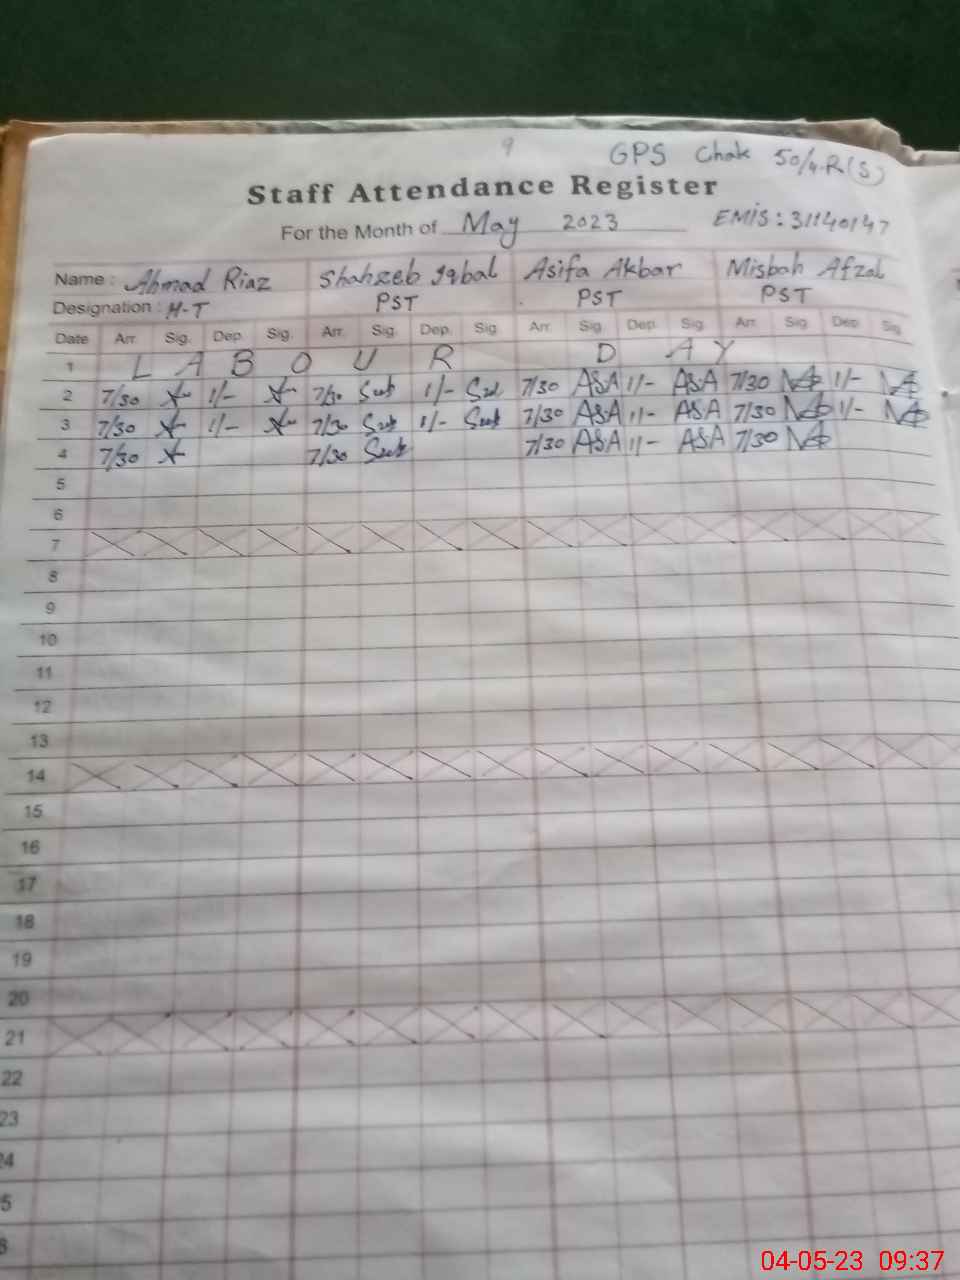 9
GPS Chak 50/4-R(S)
Staff Attendance Register
For the Month of May 2023 EMIS: 31140147
Name: Ahmad Riaz Shahzeb Iqbal Asifa Akbar Misbah Afzal
Designation: H-T PST PST PST
Date Arr. Sig. Dep. Sig. Arr. Sig. Dep. Sig. Arr. Sig. Dep. Sig. Arr. Sig. Dep. Sig.
1 L A B O U R D A Y
2 7/30 1/- 7/30 1/- 7/30 ASA 1/- ASA 7/30 1/-
3 7/30 1/- 7/30 1/- 7/30 ASA 1/- ASA 7/30 1/-
4 7/30 7/30 7/30 ASA 1/- ASA 7/30
5
6
7
8
9
10
11
12
13
14
15
16
17
18
19
20
21
22
23
04-05-23 09:37